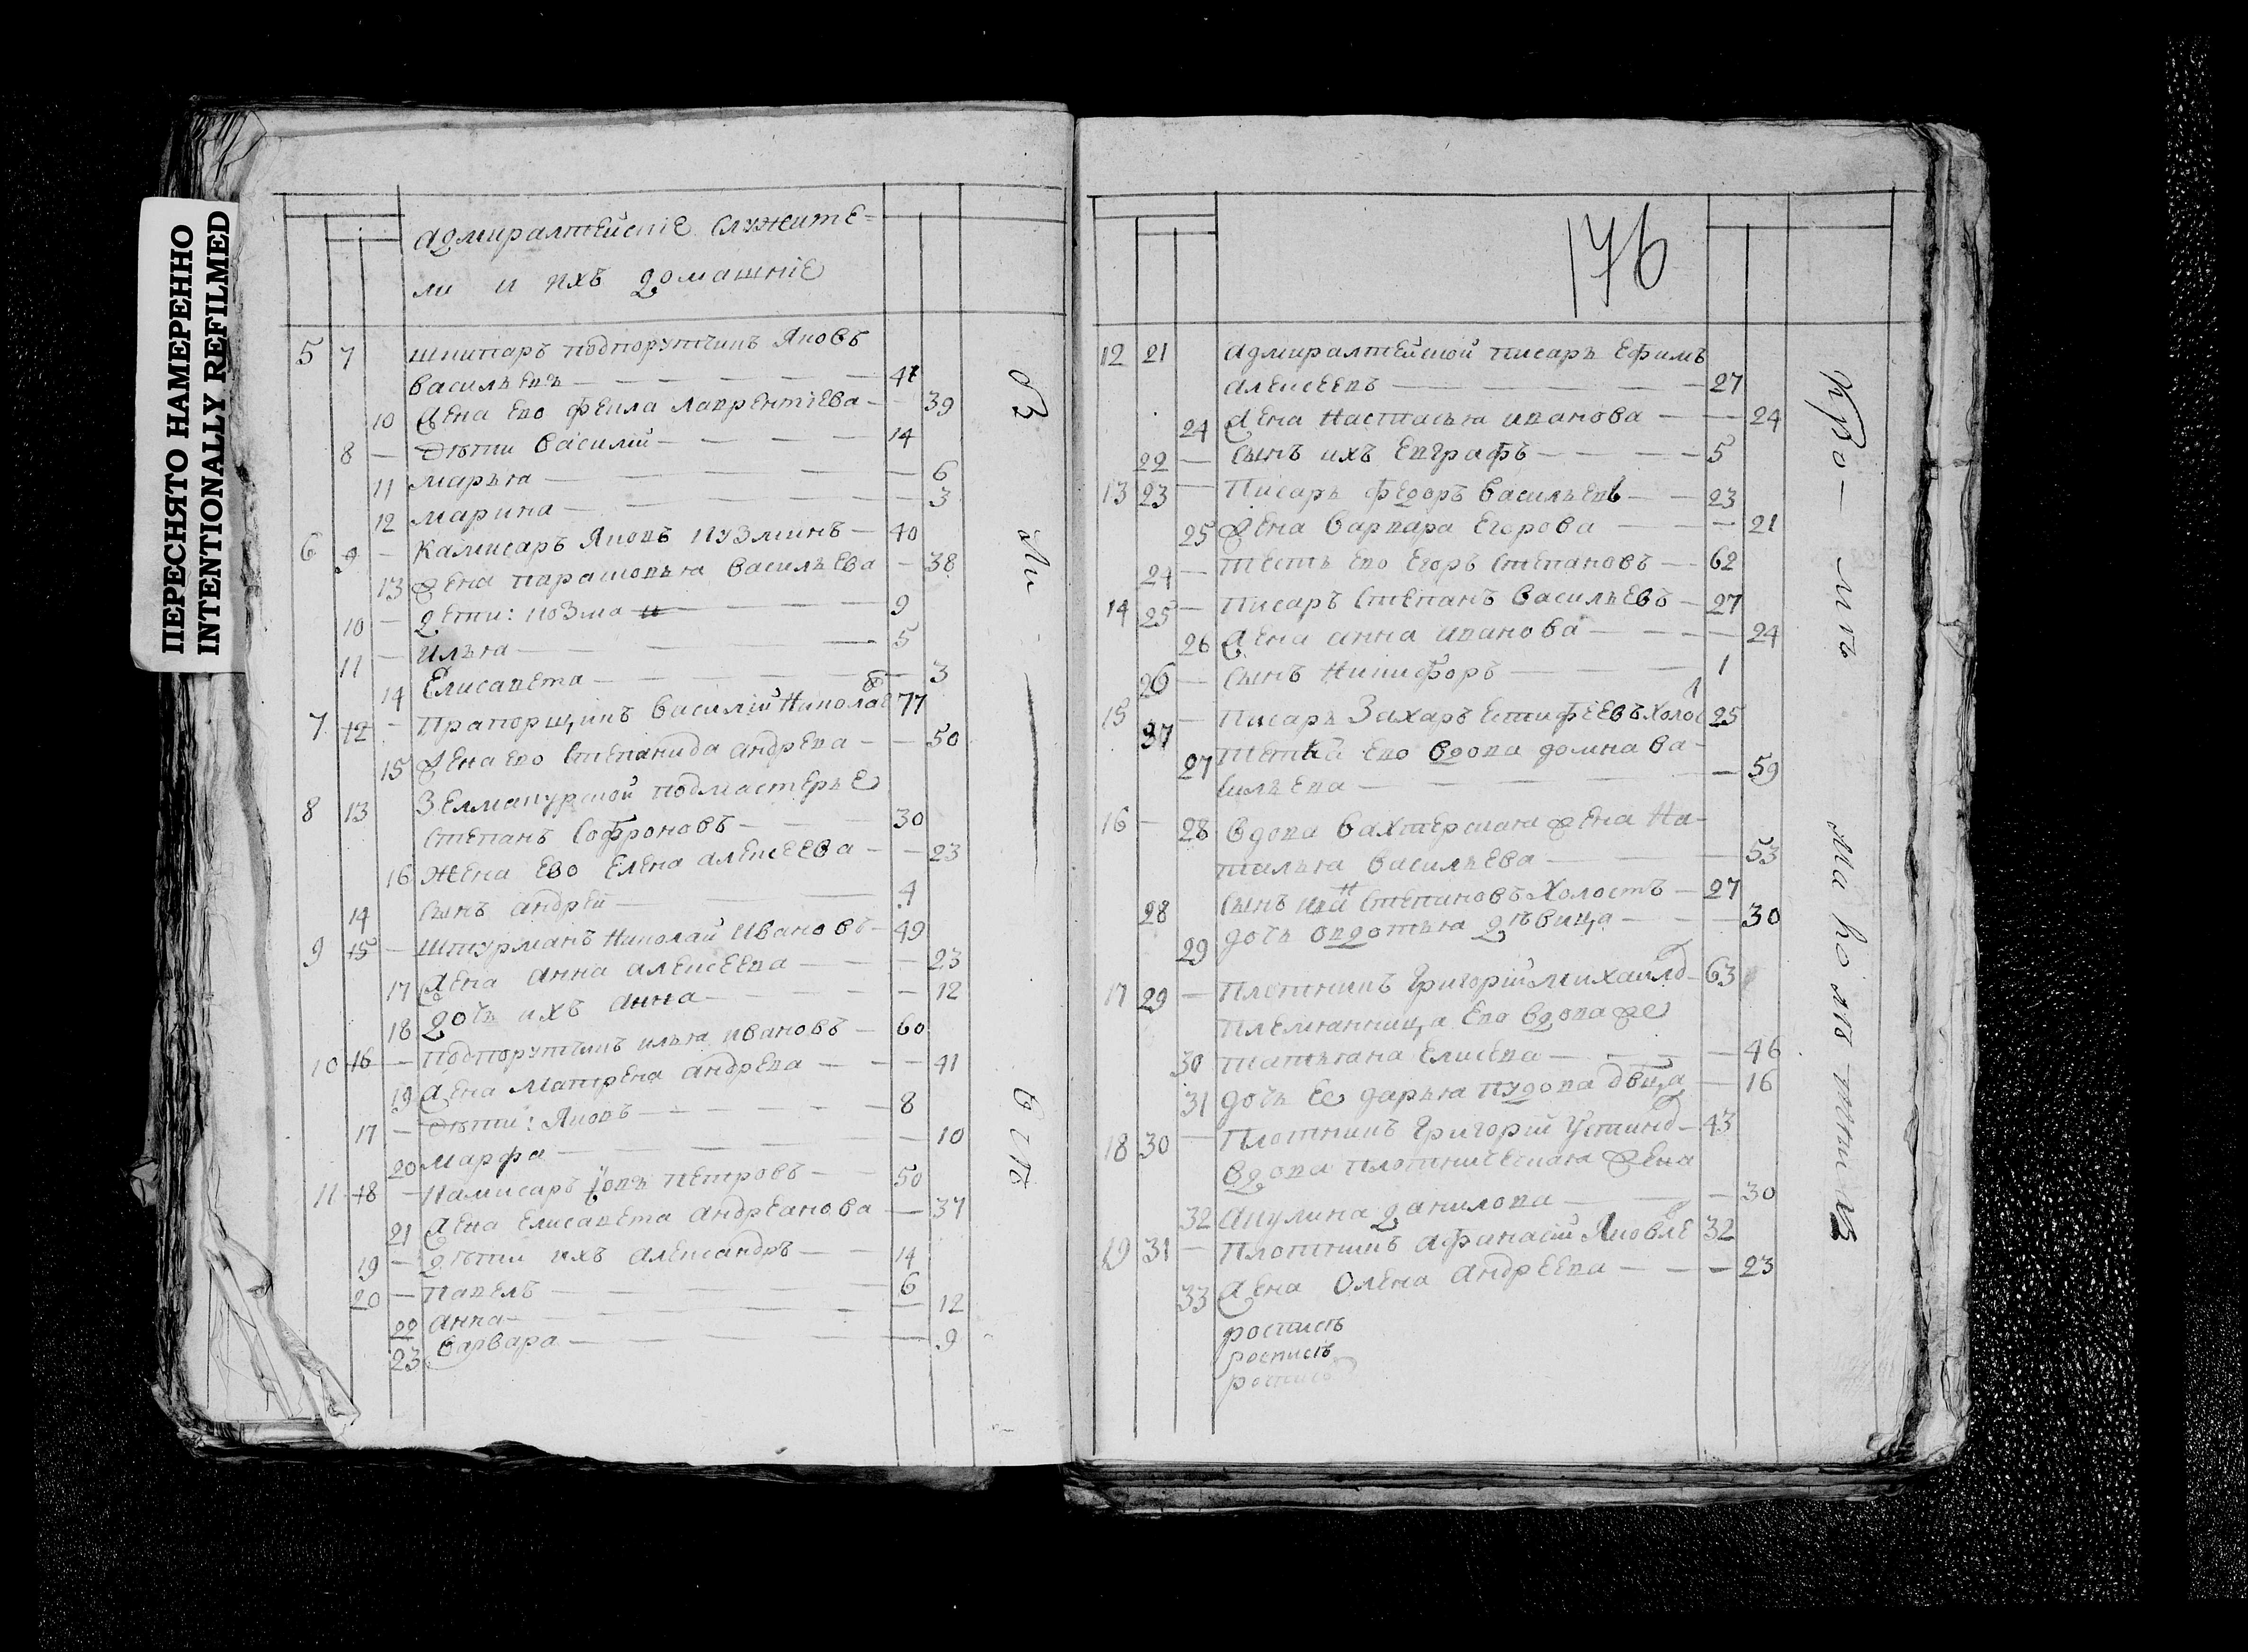 ПЕРЕСНЯТО НАМЕРЕННО
INTENTIONALLY REFILMED
Адмиралтейскіе служите-
ли и ихъ домашніе
5 7 шкипаръ подпорутчикъ Яковъ
васильевъ 41
10 Жена ево Фекла лаврентіева 39
8 Дѣти василій 14
11 марья 6
12 марина 3
6 9 камисаръ Яковъ кузминъ 40
13 жена парасковья васильева 38
10 дети: козма 9
11 илья 5
14 Елисавета 3
7 12 Прапорщикъ василій Николаев 77
15 жена ево степанида андрева 50
8 13 подмастерье
степанъ Софроновъ 30
16 жена Ево Елена алексеева 23
14 сынъ андрей 4
9 15 штурманъ Николай Ивановъ 49
17 жена анна алексеева 23
18 дочь ихъ анна 12
10 16 подпорутчикъ илья ивановъ 60
19 жена Матрена андрева 41
17 дѣти: Яковъ 8
20 марфа 10
11 18 камисаръ Іовъ петровъ 50
21 жена елисавета андреанова 37
19 дѣти ихъ александръ 14
20 павелъ 6
22 анна 12
23 варвара 9
176
12 21 адмиралтейской писарь ефимъ
алексеевъ 27
24 жена настасья иванова 24
22 сынъ ихъ евграфъ 5
13 23 Писарь федоръ васильевъ 23
25 жена варвара егорова 21
24 тесть ево егоръ степановъ 62
14 25 писарь степанъ васильевъ 27
26 жена анна иванова 24
26 сынъ никифоръ 1
15 27 Писарь Захаръ естифеевъ холос 25
27 ево вдова домна ва-
сильева 59
16 28 вдова вахтерская жена На-
талья васильева 53
28 сынъ степановъ холостъ 27
29 дочь овдотья дѣвица 30
17 29 плотникъ григорій михаило 63
племянница ево вдова же
30 татьяна елисева 46
31 дочь ее дарья пудова двца 16
18 30 плотникъ григорій устино 43
вдова плотническая жена
32 акулина данилова 30
19 31 плотникъ афанасій Яковле 32
33 жена Олена андреева 23
роспись
роспись
роспись